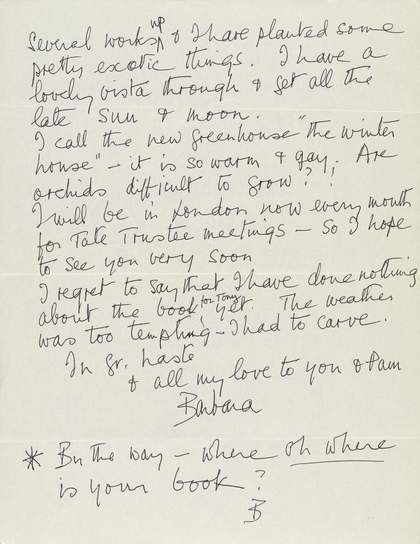 Several works up & I have planted some
pretty exotic things. I have a
lovely vista through & get all the
late sun & moon.
I call the new greenhouse "the winter
house" – it is so warm & gay. Are
orchids difficult to grow?
I will be in London now every month
for Tate Trustee meetings – so I hope
to see you very soon
I regret to say that I have done nothing
about the book for Tony yet. The weather
was too tempting – I had to carve.
In gr. haste
& all my love to you & Pam
Barbara
* By the way – where oh where
is your book?
B